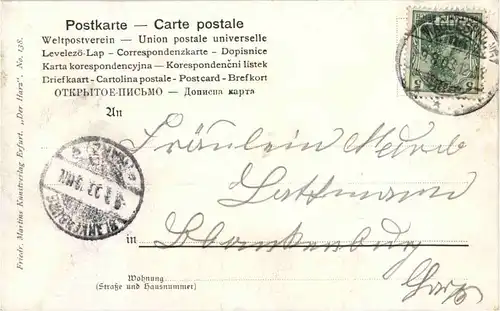 Postkarte — Carte postale
Weltpostverein — Union postale universelle
Levelező-Lap — Correspondenzkarte — Dopisnice
Karta korespondencyjna — Korespondenční listek
Briefkaart - Cartolina postale - Postcard - Brefkort
ОТКРЫТОЕ-ПИСЬМО — Дописна карта
An
Fräulein
in Blankenburg
Harz
Wohnung
(Straße und Hausnummer)
Friedr. Martins Kunstverlag Erfurt. „Der Harz", No. 138.